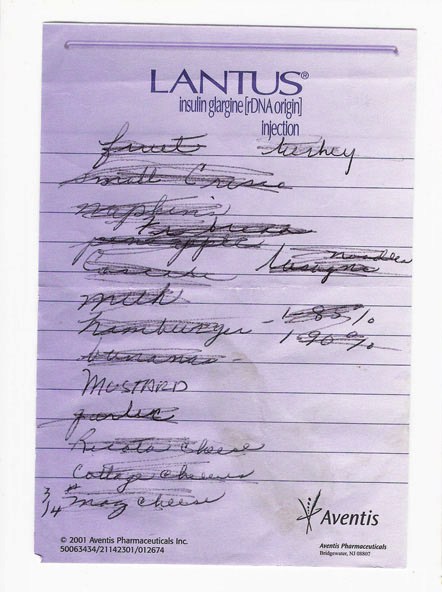 LANTUS®
insulin glargine [rDNA origin]
injection
fruit turkey
small Crisco
napkins
pineapple
noodles
lasagna
milk
hamburger - 1 88%
1 90%
bananas -
MUSTARD
garlic
Ricota cheese
Cottage cheese
3/4 # moz cheese
Aventis
© 2001 Aventis Pharmaceuticals Inc.
50063434/21142301/012674
Aventis Pharmaceuticals
Bridgewater, NJ 08807